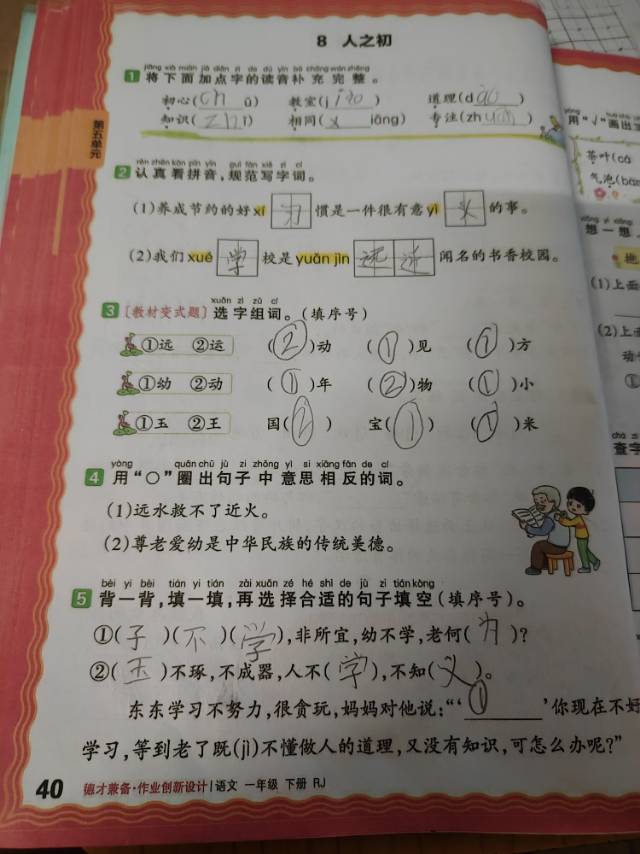 8 人之初
jiāng xià miàn jiā diǎn zì de dú yīn bǔ chōng wán zhěng
1 将下面加点字的读音补充完整。
初心(ch ū) 教室(jiào) 道理(dào)
知识(zhī) 相同(x iāng) 专注(zhuān)
rèn zhēn kàn pīn yīn guī fàn xiě zì cí
2 认真看拼音,规范写字词。
(1)养成节约的好xí 习 惯是一件很有意yì 义 的事。
(2)我们xué 学 校是yuǎn jìn 远近 闻名的书香校园。
xuǎn zì zǔ cí
3 [教材变式题]选字组词。(填序号)
①远 ②运 (②)动 (①)见 (①)方
①幼 ②动 (①)年 (②)物 (①)小
①玉 ②王 国(②) 宝(①) (①)米
yòng quān chū jù zi zhōng yì si xiāng fǎn de cí
4 用“○”圈出句子中意思相反的词。
(1)远水救不了近火。
(2)尊老爱幼是中华民族的传统美德。
bèi yi bèi tián yi tián zài xuǎn zé hé shì de jù zi tián kòng
5 背一背,填一填,再选择合适的句子填空(填序号)。
①(子)(不)(学),非所宜,幼不学,老何(为)?
②(玉)不琢,不成器,人不(学),不知(义)。
东东学习不努力,很贪玩,妈妈对他说:“‘①’你现在不好
学习,等到老了既(jì)不懂做人的道理,又没有知识,可怎么办呢?”
40 德才兼备·作业创新设计 | 语文 一年级 下册 RJ
第五单元
用“√”画出
茶叶(cá
气泡(bāo
想一想
(1)上面
(2)上
动
①
chá zì
查字